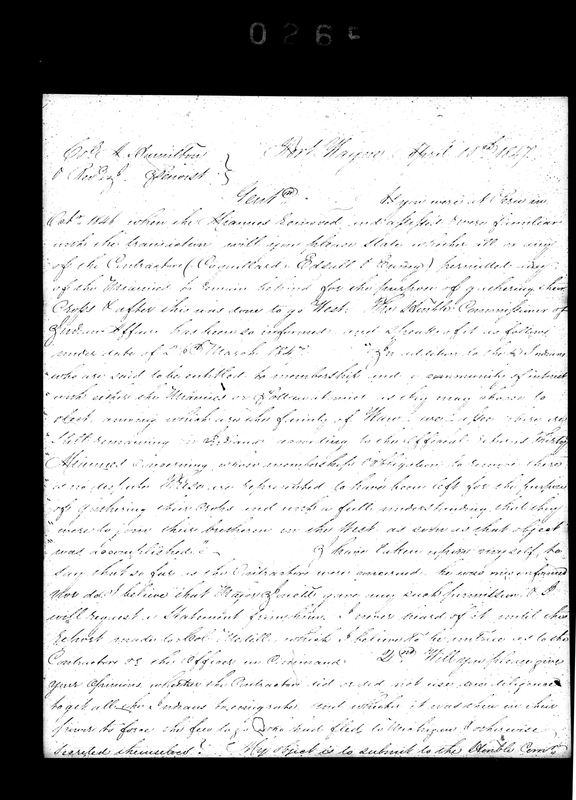 0265
Col. A Hamilton
& Benoist
Fort Wayne April 10th 1847
Gentn. As you were at Peru in
Octr. 1846 when the Miamies removed and assisted & were familiar
with the transaction will you please state whether all or any
of the Contractors (Coquillard Edsall & Ewing) permitted any
of the Miamies to remain behind for the purpose of gathering their
Crops & after this was done to go West. The Honble Commissioner of
Indian Affairs has been so informed and speaks of it as follows
under date of 26th March 1847. "In addition to the Indians
who are said to be entitled to membership and a community of interest
with either the Miamies or Pottawatamies as they may choose to
elect, among which is the family of there are
still remaining in Indiana according to the Official returns thirty
Miamies concerning whose membership & obligation to remove there
is no dispute. These are represented to have been left for the purpose
of gathering their crops and with a full understanding that they
were to join their brethren in the West as soon as that object
was accomplished." I have taken upon myself to
say that so far as the Contractors were concerned he was misinformed
Nor do I believe that Major gave any such permission & I
will request a Statement from him. I never heard of it until this
report made to Col. Medill which I believe to be untrue as to the
Contractors or the Officer in Command. 2nd. Will you please give
your opinions whether the Contractors did or did not use due diligence
to get all the Indians to emigrate and whether it was then in their
power to force the few to go who had fled to Michigan & otherwise
secreted themselves? My object is to submit to the Honble Comr.